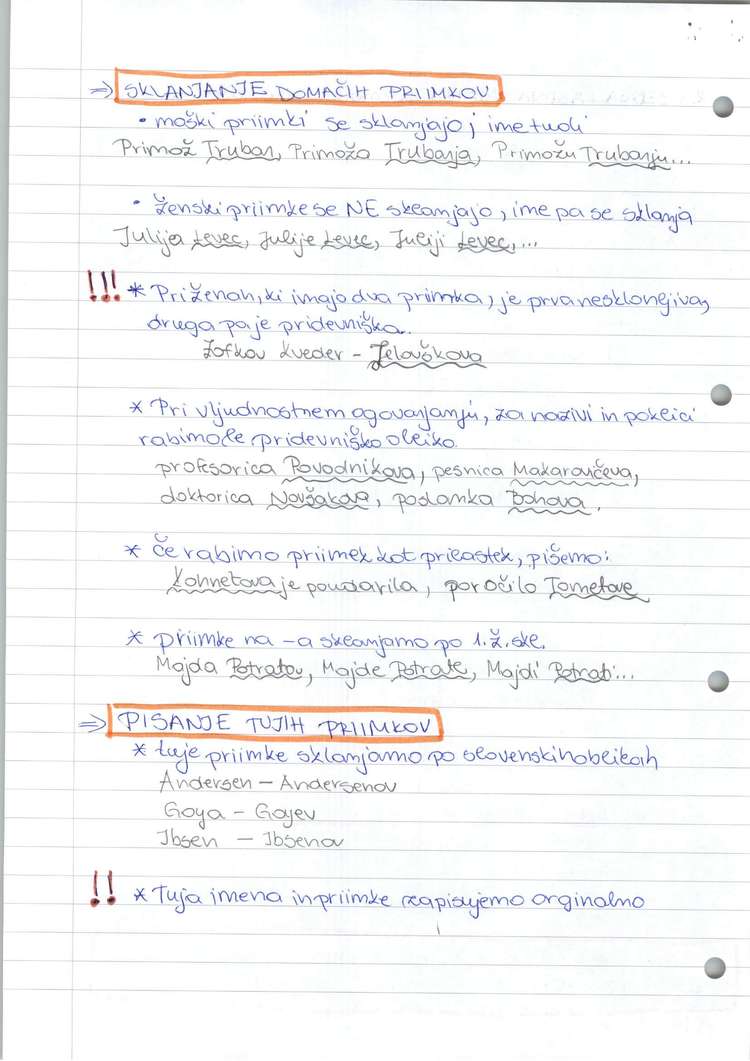 ⇒ SKLANJANJE DOMAČIH PRIIMKOV
• moški priimki se sklanjajo, ime tudi
Primož Trubar, Primoža Trubarja, Primožu Trubarju...
• ženski priimke se NE sklanjajo, ime pa se sklanja
Julija Levec, Julije Levec, Juliji Levec,...
!!! * Pri ženah, ki imajo dva priimka, je prva nesklonljiva,
druga pa je pridevniška.
Zofkov Kveder - Jelovškova
* Pri vljudnostnem ogovarjanju, za nazivi in poklici
rabimo le pridevniško obliko.
profesorica Povodnikova, pesnica Makarovičeva,
doktorica Novšakova, poslanka Bohova.
* Če rabimo priimek kot prilastek, pišemo:
Kohnetova je poudarila, poročilo Tometove
* priimke na -a sklanjamo po 1. ž. skl.
Majda Potrata, Majde Potrate, Majdi Potrati...
⇒ PISANJE TUJIH PRIIMKOV
* tuje priimke sklanjamo po slovenskih oblikah
Andersen - Andersenov
Goya - Goyev
Ibsen - Ibsenov
!! * Tuja imena in priimke zapisujemo orginalno